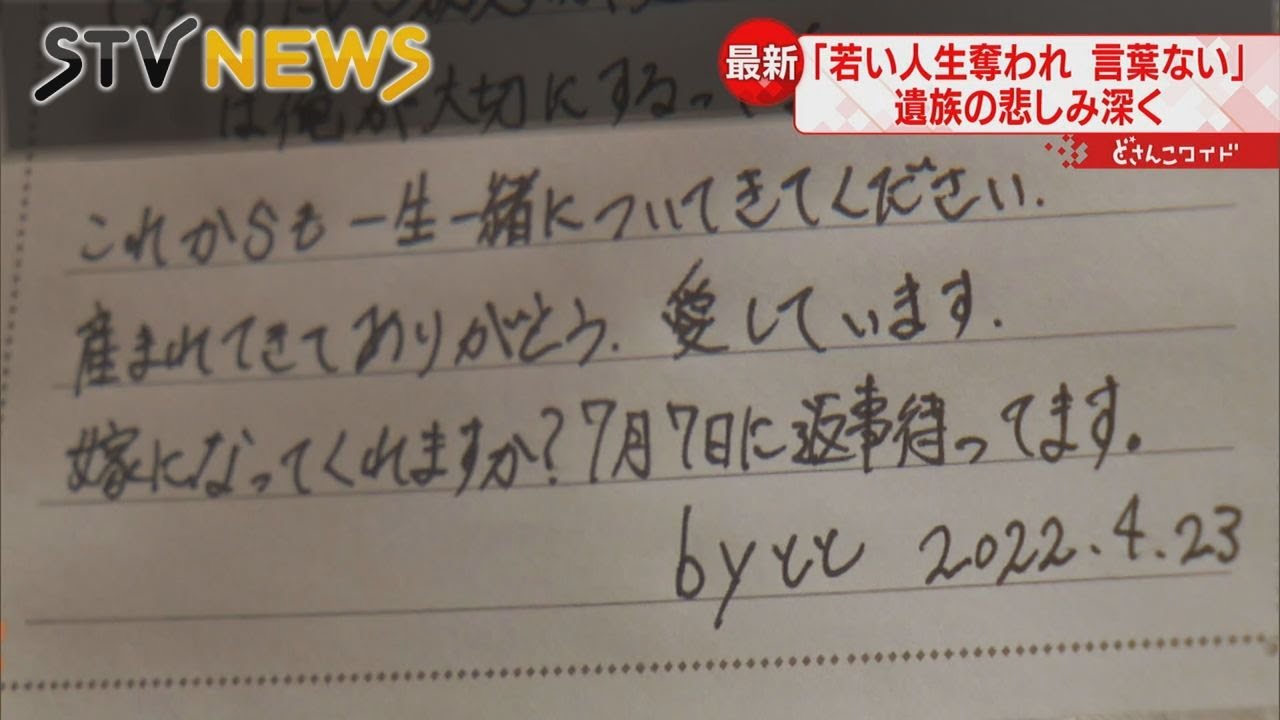 STV NEWS
最新
「若い人生奪われ 言葉ない」
遺族の悲しみ深く
どさんこワイド
は俺が大切にするっ
これからも一生一緒についてきてください.
産まれてきてありがとう. 愛しています.
嫁になってくれますか?7月7日に返事待ってます。
by とと 2022.4.23